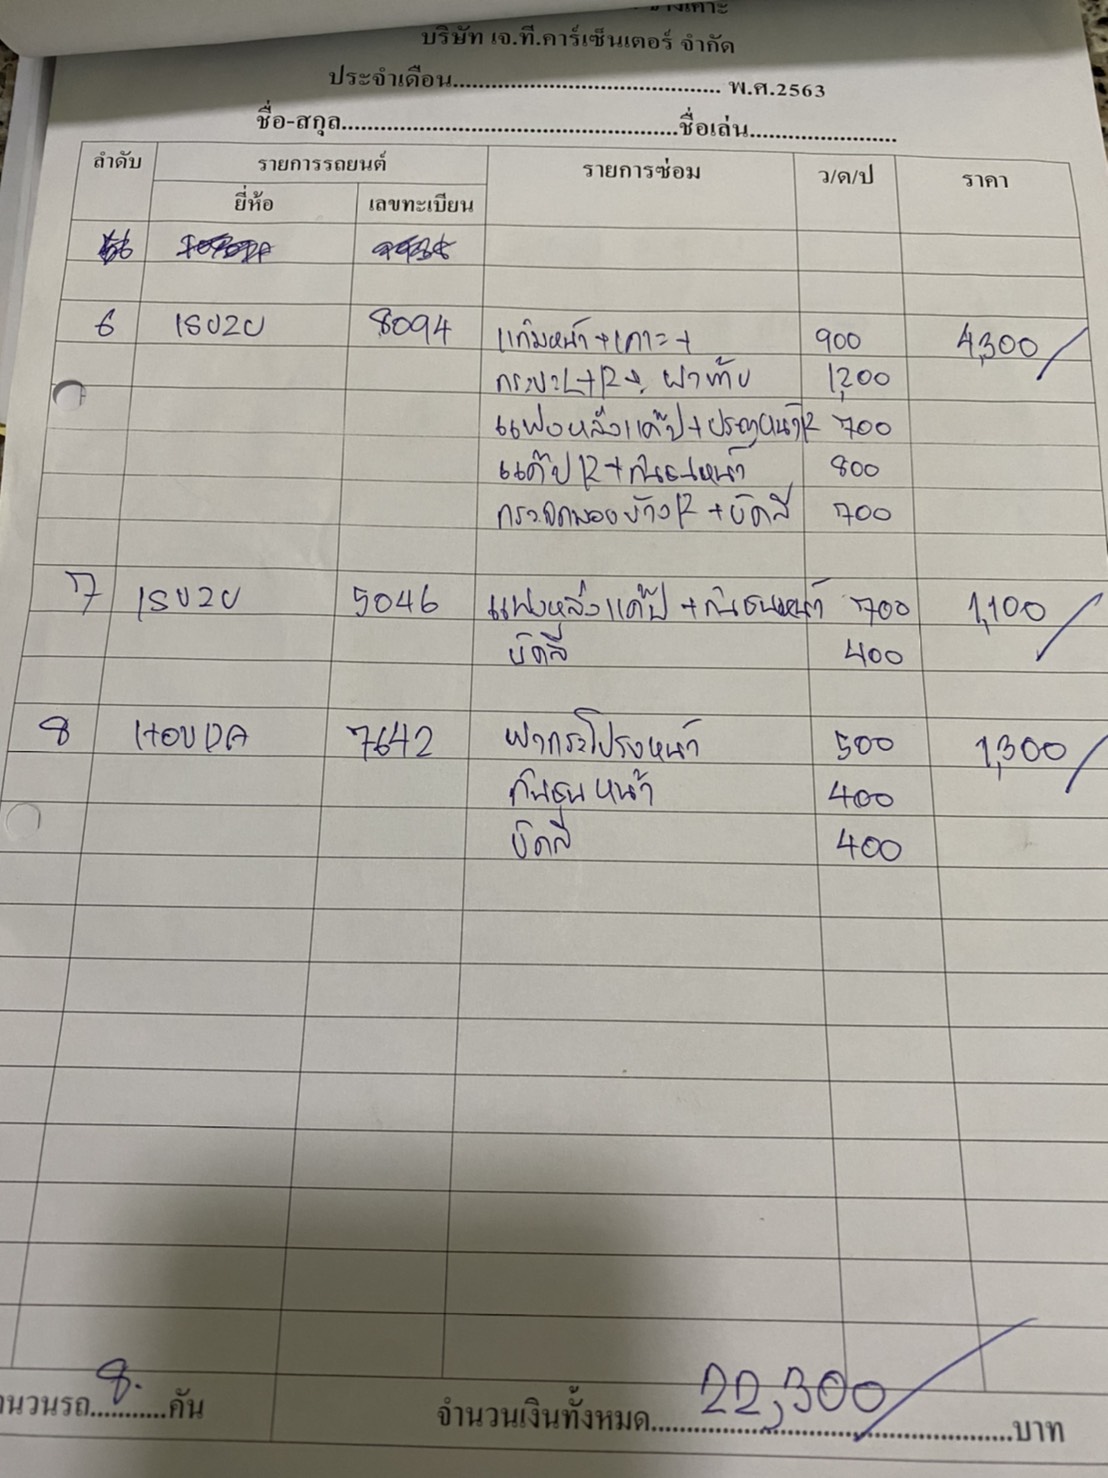 บริษัท เจ.ที.คาร์เซ็นเตอร์ จำกัด
ประจำเดือน.................................................. พ.ศ.2563
ชื่อ-สกุล..................................................ชื่อเล่น......................
ลำดับ รายการรถยนต์ รายการซ่อม ว/ด/ป ราคา
ยี่ห้อ เลขทะเบียน
6 ISUZU 8094 แก้มหน้า+เคาะ+ 900 4,300
กระบะL+R+ ฝาท้าย 1,200
แผงหลังแค๊ป+ประตูหน้าR 700
แค๊ปR+กันชนหน้า 800
กระจกมองข้างR+ขัดสี 700
7 ISUZU 5046 แผงหลังแค๊ป+กันชนหน้า 700 1,100
ขัดสี 400
8 HONDA 7642 ฝากระโปรงหน้า 500 1,300
กันชนหน้า 400
ขัดสี 400
นวนรถ..8...คัน จำนวนเงินทั้งหมด....22,300....บาท